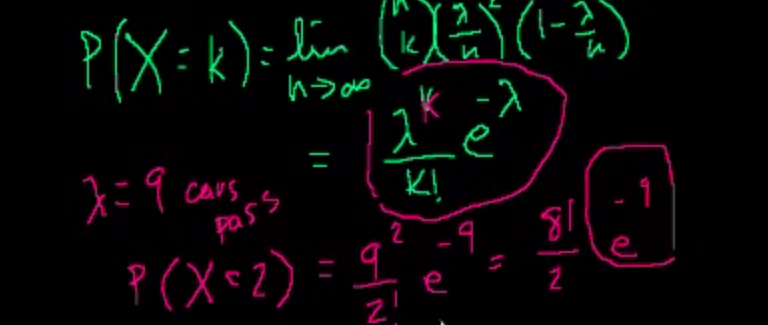 P(X=k)=lim n→∞ (n k)(λ/n)(1-λ/n)
= λ^k/k! e^-λ
λ=9 cars pass
P(X=2) = 9^2/2! e^-9 = 81/2 e^-9